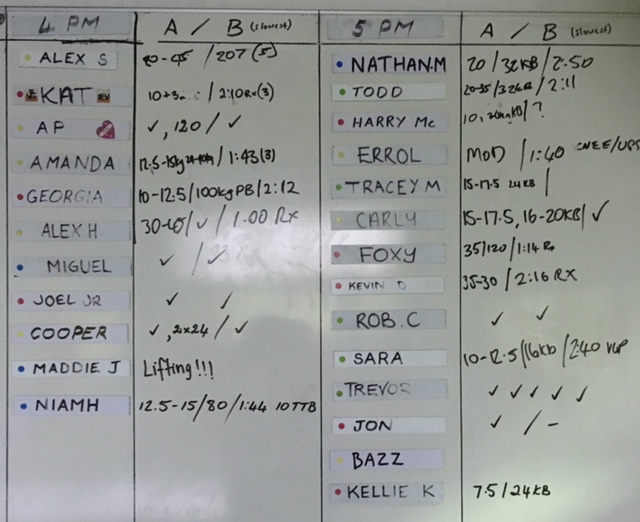 4 PM A / B (slowest)
ALEX S 20-45 / 207 (5)
KAT 10+3 / 2:10Rx(3)
AP ✓, 120 / ✓
AMANDA 12.5-15kg / 1:43(3)
GEORGIA 10-12.5/100kg PB/2:12
ALEX H 30-40/✓/1:00 Rx
MIGUEL ✓ / ✓
JOEL JR ✓ /
COOPER ✓, 2x24 / ✓
MADDIE J Lifting!!!
NIAMH 12.5-15/80/1:44 10TTB
5 PM A / B (slowest)
NATHAN.M 20/32KB/2:50
TODD 20-35/32KB/2:11
HARRY Mc 10, KB/?
ERROL MOD / 1:40
TRACEY M 15-17.5 24KB /
CARLY 15-17.5, 16-20KB/✓
FOXY 35/120/1:14 Rx
KEVIN D 35-30 / 2:16 RX
ROB.C ✓ ✓
SARA 10-12.5/16KB/2:40
TREVOR ✓ ✓ ✓ ✓
JON ✓ / -
BAZZ
KELLIE K 7.5/24KB